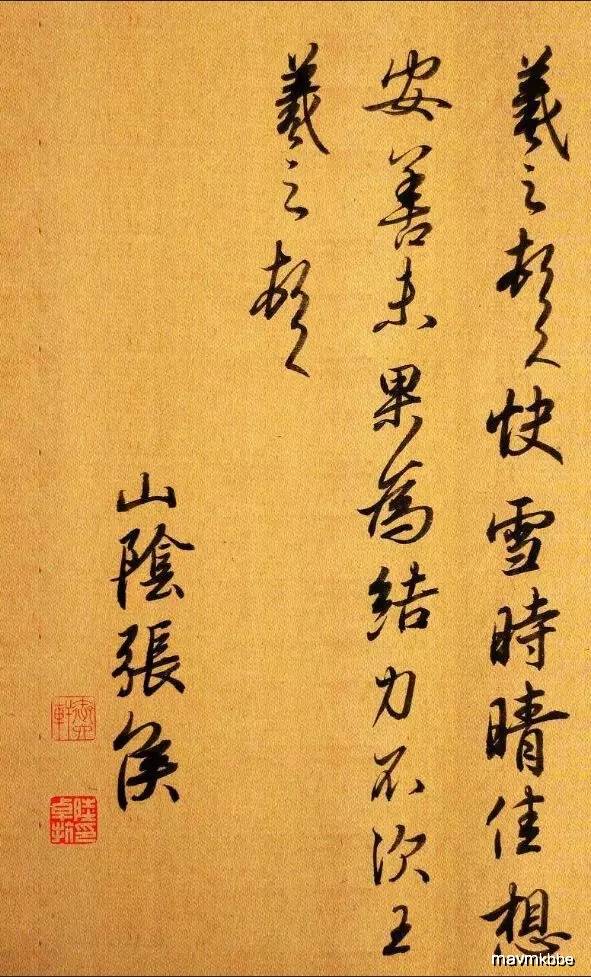 羲之頓首快雪時晴佳想
安善未果為結力不次王
羲之頓首
山陰張侯
mavmkbbe